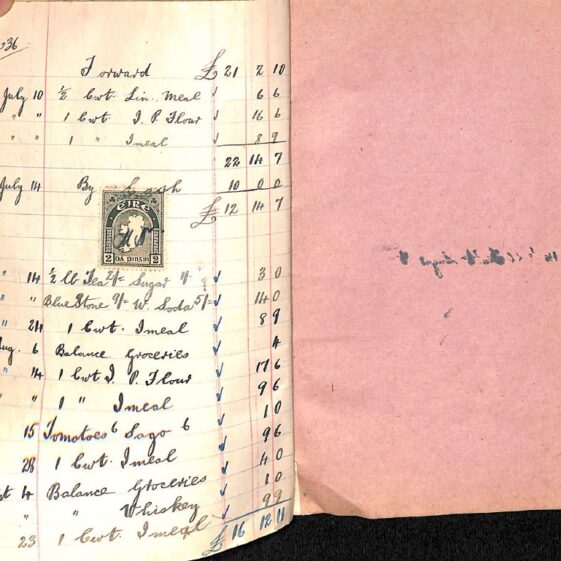 936
Forward £ 21 2 10
July 10 ½ Cwt. Lin. Meal 6 6
" " 1 Cwt I. P. Flour 16 6
" " 1 " Imeal 8 9
22 14 7
July 14 By Cash 10 0 0
£ 12 14 7
EIRE
2 2
" 14 ½ lb Tea 2/- Sugar 3 0
" " BlueStone 9/- W. Soda 5/- 14 0
" 24 1 Cwt. Imeal 8 9
Aug. 6 Balance Groceries 4
" 14 1 Cwt I. P. Flour 17 6
" 1 " Imeal 9 6
15 Tomatoes 6 Sago 6 1 0
28 1 Cwt. Imeal 9 6
4 Balance Groceries 4 0
" " Whiskey 1 0
23 1 Cwt. Imeal 9 9
£ 16 12 11